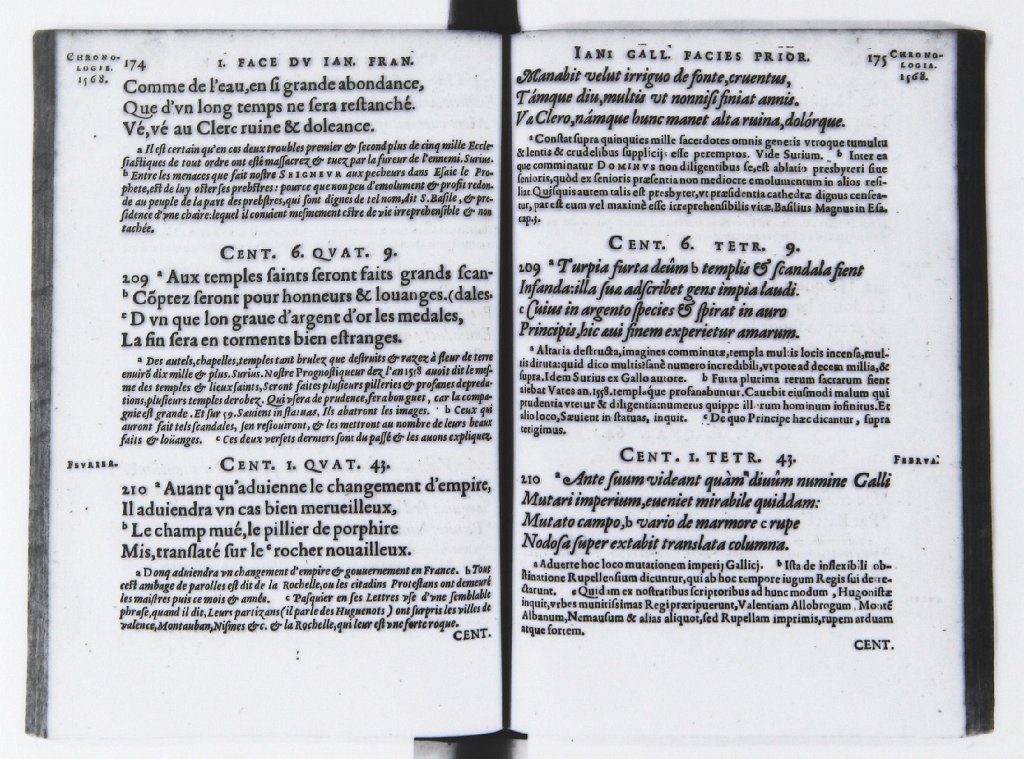 CHRONO-
LOGIE.
1568.
174 I. FACE DV IAN. FRAN.
Comme de l'eau, en si grande abondance,
Que d'vn long temps ne sera restanché.
Vé, vé au Clerc ruine & doleance.
a Il est certain qu'en ces deux troubles premier & second plus de cinq mille Eccle-
siastiques de tout ordre ont esté massacrez & tuez par la fureur de l'ennemi. Surius.
b Entre les menaces que fait nostre SEIGNEVR aux pecheurs dans Esaie le Pro-
phete, est de luy oster ses prebstres: pource que non peu d'emolument & profit redon-
de au peuple de la part des prebstres, qui sont dignes de tel nom, dit S. Basile, & pre-
sidence d'vne chaire: lequel il conuient mesmement estre de vie irreprehensible & non
tachée.
CENT. 6. QVAT. 9.
209 a Aux temples saints seront faits grands scan-
b Cõptez seront pour honneurs & louanges. (dales.
c D vn que lon graue d'argent d'or les medales,
La fin sera en torments bien estranges.
a Des autels, chapelles, temples tant brulez que destruits & razez à fleur de terre
enuirõ dix mille & plus. Surius. Nostre Prognostiqueur dez l'an 1558 auoit dit le mes-
me des temples & lieux saints, Seront faites plusieurs pilleries & profanes depreda-
tions, plusieurs temples derobez. Qui vsera de prudence, sera bon guet, car la compa-
gnie est grande. Et sur 59. Sæuient in statuas, Ils abatront les images. b Ceux qui
auront fait tels scandales, sen resouiront, & les mettront au nombre de leurs beaux
faits & loüanges. c Ces deux versets derniers sont du passé & les auons expliquez.
FEVRIER.
CENT. I. QVAT. 43.
210 a Auant qu'aduienne le changement d'empire,
Il aduiendra vn cas bien merueilleux,
b Le champ mué, le pillier de porphire
Mis, translaté sur le c rocher nouailleux.
a Donq aduiendra vn changement d'empire & gouuernement en France. b Tout
cest ambage de parolles est dit de la Rochelle, ou les citadins Protestans ont demeuré
les maistres puis ce mois & année. c Pasquier en ses Lettres vse d'vne semblable
phrase, quand il dit, Leurs partizans (il parle des Huguenots) ont surpris les villes de
valence, Montauban, Nismes &c. & la Rochelle, qui leur est vne forte roque.
CENT.
IANI GALL. FACIES PRIOR. 175
CHRONO-
LOGIA.
1568.
Manabit velut irriguo de fonte, cruentus,
Támque diu, multis vt nonnisi finiat annis.
Va Clero, námque hunc manet alta ruina, dolórque.
a Constat supra quinquies mille sacerdotes omnis generis vtroque tumultu
& lentis & crudelibus supplicijs esse peremptos. Vide Surium. b Inter ea
quæ comminatur DOMINVS non diligentibus se, est ablatio presbyteri siue
senioris, quòd ex senioris præsentia non mediocre emolumentum in alios resi-
liat. Quisquis autem talis est presbyter, vt præsidentia cathedræ dignus censea-
tur, par est eum vel maximè esse irreprehensibilis vitæ. Basilius Magnus in Esa.
cap. 3.
CENT. 6. TETR. 9.
209 a Turpia furta deûm b templis & scandala fient
Infanda: illa sua adscribet gens impia laudi.
c Cuius in argento species & spirat in auro
Principis, hic aui finem experietur amarum.
a Altaria destructa, imagines comminutæ, templa multis locis incensa, mul-
tis diruta: quid dico multis? sanè numero incredibili, vt pote ad decem millia, &
supra. Idem Surius ex Gallo autore. b Furta plurima rerum sacrarum fient
aiebat Vates an. 1558. templáque profanabuntur. Cauebit eiusmodi malum qui
prudentia vtetur & diligentia: numerus quippe illorum hominum infinitus. Et
alio loco, Sæuient in statuas, inquit. c De quo Principe hæc dicantur, supra
tetigimus.
FEBRVA.
CENT. I. TETR. 43.
210 a Ante suum videant quàm diuûm numine Galli
Mutari imperium, eueniet mirabile quiddam:
Mutato campo, b vario de marmore c rupe
Nodosa super extabit translata columna.
a Aduerte hoc loco mutationem imperij Gallici. b Ista de inflexibili ob-
stinatione Rupellensium dicuntur, qui ab hoc tempore iugum Regis sui dete-
starunt. c Quidam ex nostratibus scriptoribus ad hunc modum, Hugonistæ
inquit, vrbes munitissimas Regi præripuerunt, Valentiam Allobrogum, Montẽ
Albanum, Nemausum & alias aliquot, sed Rupellam imprimis, rupem arduam
atque fortem.
CENT.